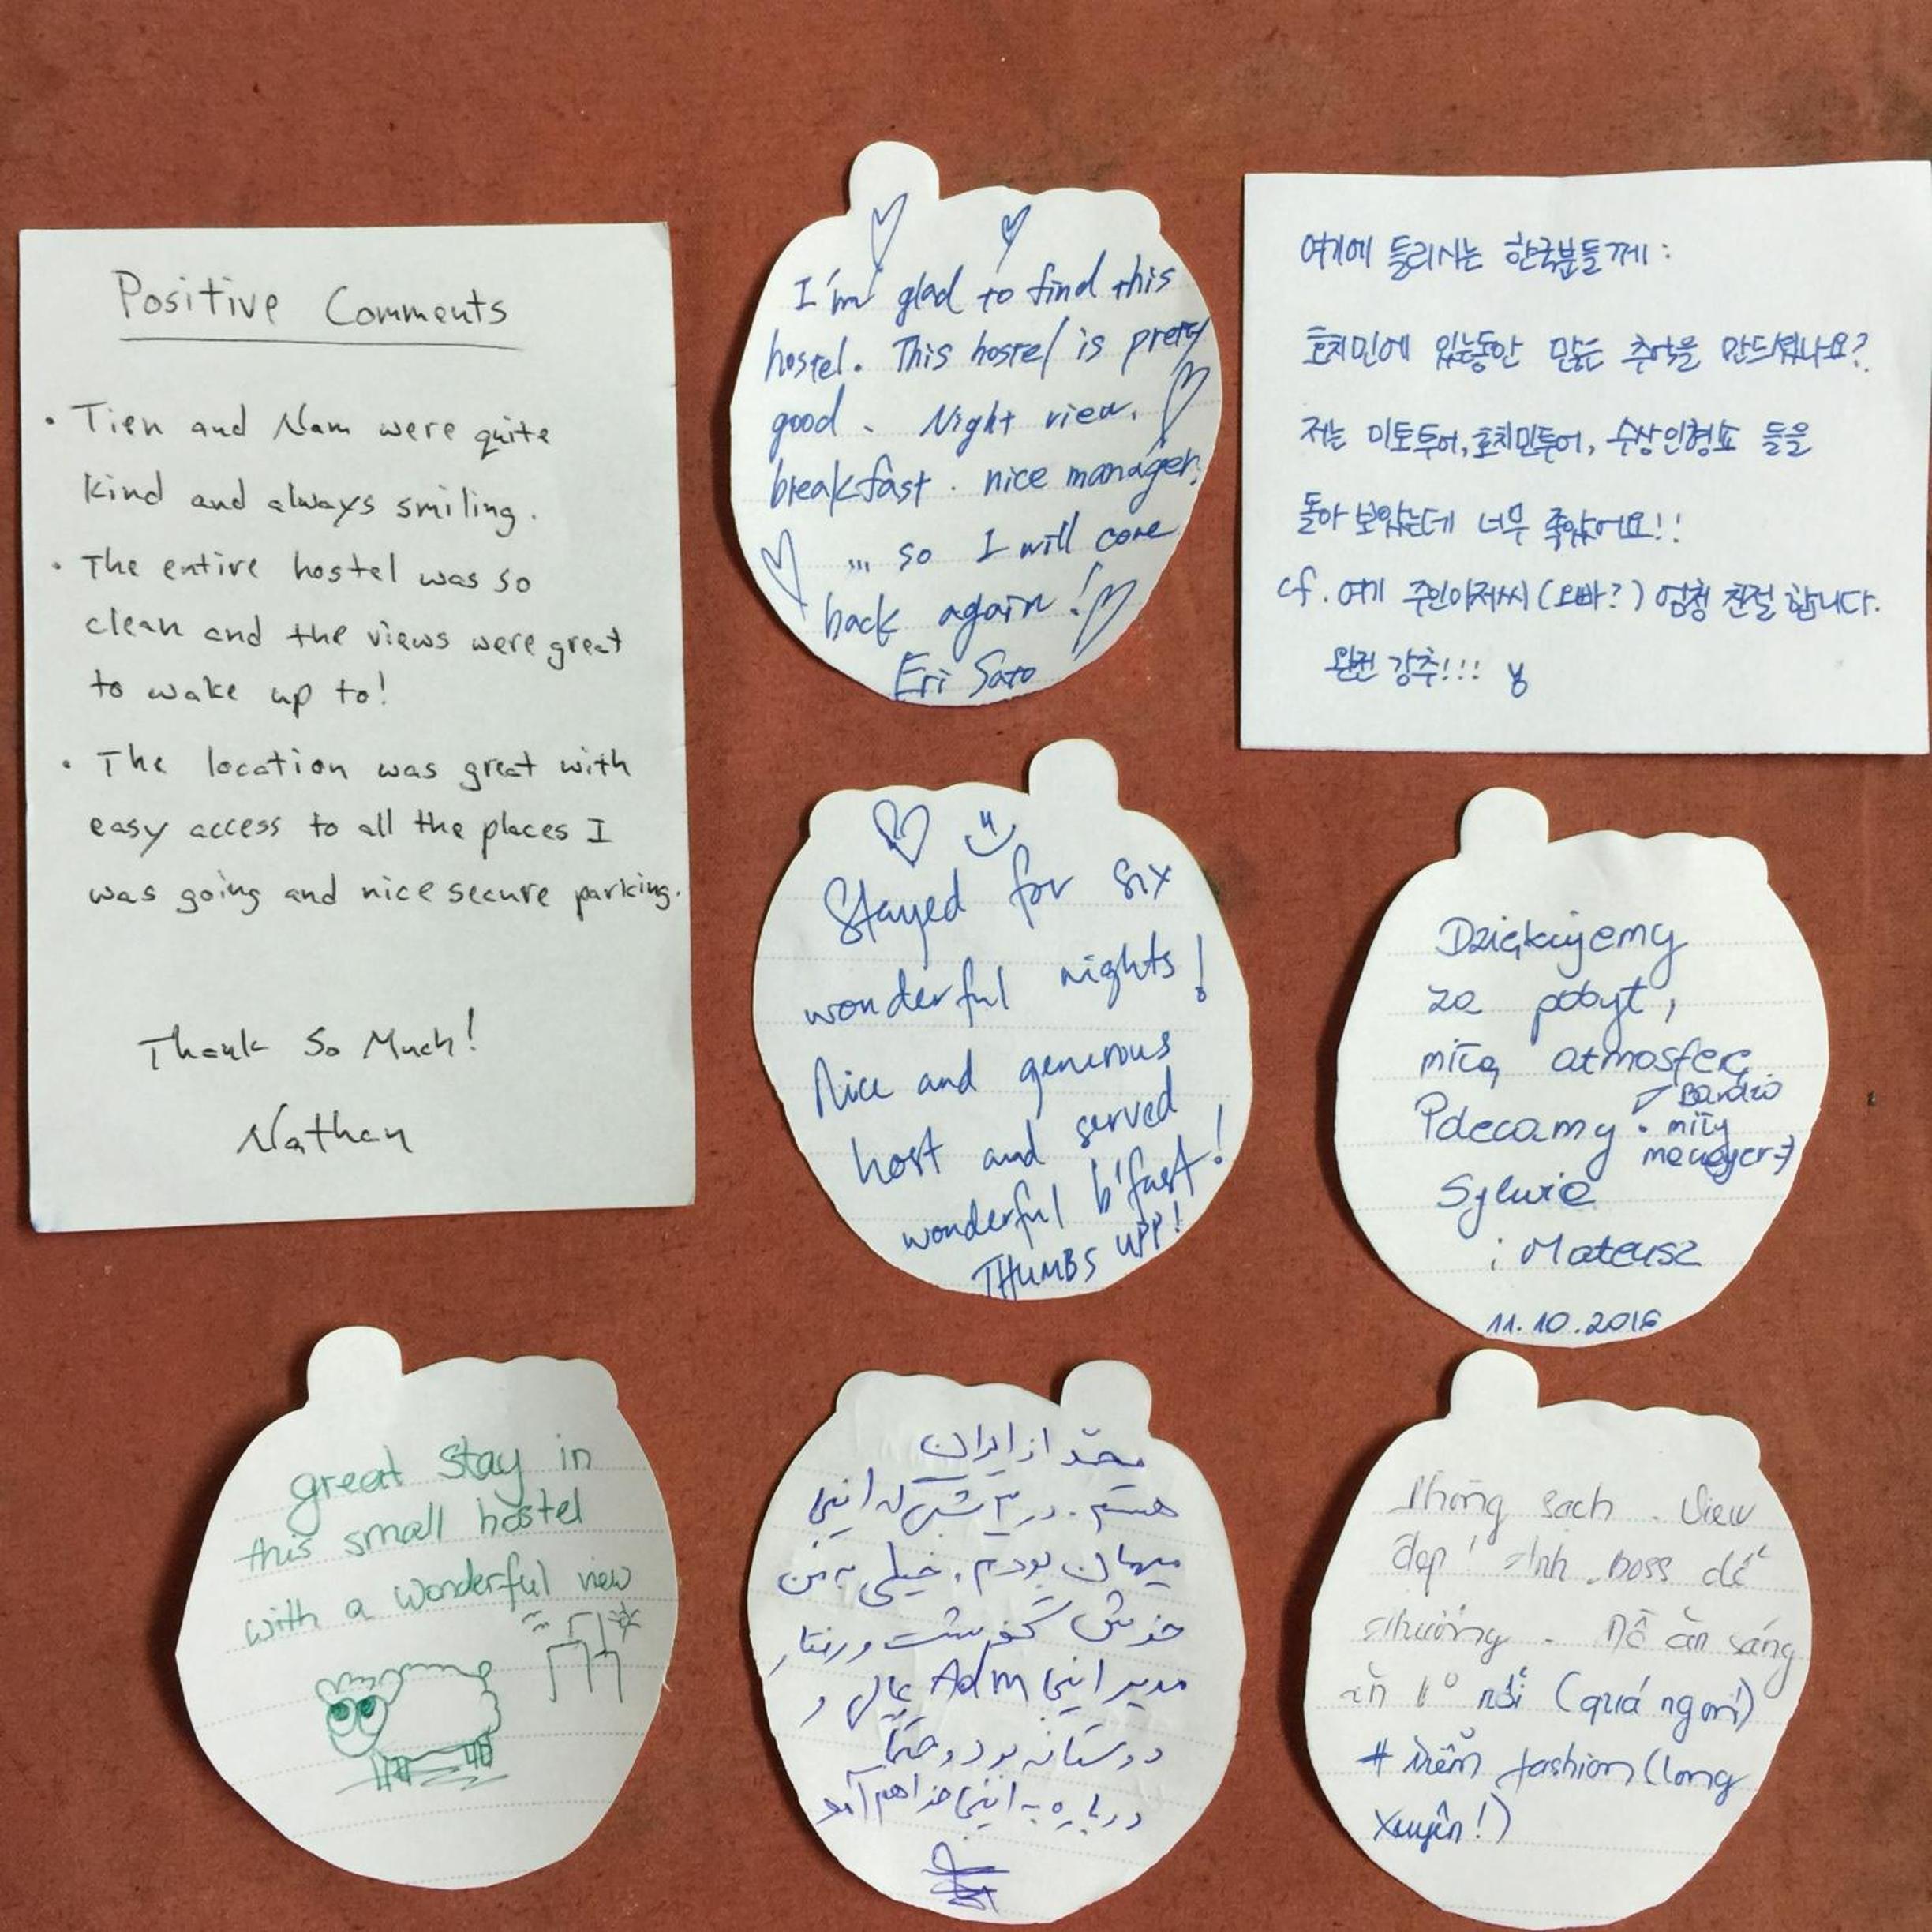 Positive Comments
• Tien and Nam were quite
kind and always smiling.
• The entire hostel was so
clean and the views were great
to wake up to!
• The location was great with
easy access to all the places I
was going and nice secure parking.
Thank So Much!
Nathan
I'm glad to find this
hostel. This hostel is prety
good. Night view.
breakfast. nice manager.
... so I will come
back again!
Eri Sato
여기에 들리시는 한국분들께:
호치민에 있는동안 많은 추억을 만드셨나요?
저는 미토투어, 호치민투어, 수상인형쇼 들을
돌아 보았는데 너무 좋았어요!!
cf. 여기 주인아저씨(오빠?) 엄청 친절 합니다.
완전 강추!!!
Stayed for six
wonderful nights!
Nice and generous
host and served
wonderful b'fast!
THUMBS UPP!
Dziękujemy
za pobyt,
miłą atmosferę
Polecamy. Bardzo
miły
menager :)
Sylwia
i Mateusz
11.10.2016
great stay in
this small hostel
with a wonderful view
محمد از ایران
هستم. در ۳ شبی که اینجا
میهمان بودم، خیلی به من
خوش گذشت و رفتار
مدیر اینجا Adm عالی و
دوستانه بود و حتما
دوباره به اینجا خواهم آمد
Phòng sạch. View
đẹp! Anh boss dễ
thương. Đồ ăn sáng
ăn k° nổi (quá ngon!)
# Trềm fashion (Long
Xuyên!)